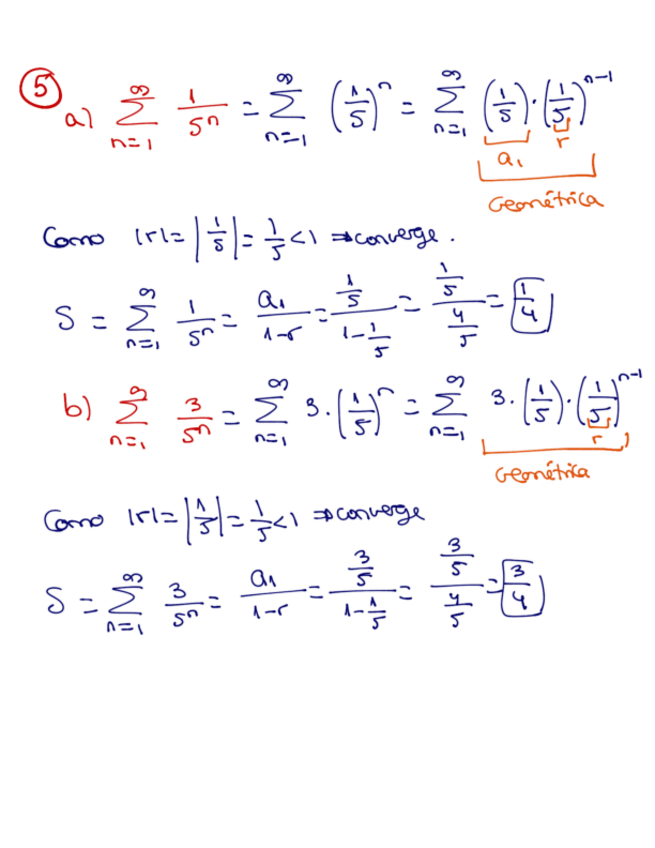 5
a) ∑_{n=1}^{∞} 1/5ⁿ = ∑_{n=1}^{∞} (1/5)ⁿ = ∑_{n=1}^{∞} (1/5)·(1/5)ⁿ⁻¹
a₁ r
Geométrica
Como |r| = |1/5| = 1/5 < 1 ⇒ converge.
S = ∑_{n=1}^{∞} 1/5ⁿ = a₁/(1-r) = (1/5)/(1-1/5) = (1/5)/(4/5) = 1/4
b) ∑_{n=1}^{∞} 3/5ⁿ = ∑_{n=1}^{∞} 3·(1/5)ⁿ = ∑_{n=1}^{∞} 3·(1/5)·(1/5)ⁿ⁻¹
r
Geométrica
Como |r| = |1/5| = 1/5 < 1 ⇒ converge
S = ∑_{n=1}^{∞} 3/5ⁿ = a₁/(1-r) = (3/5)/(1-1/5) = (3/5)/(4/5) = 3/4